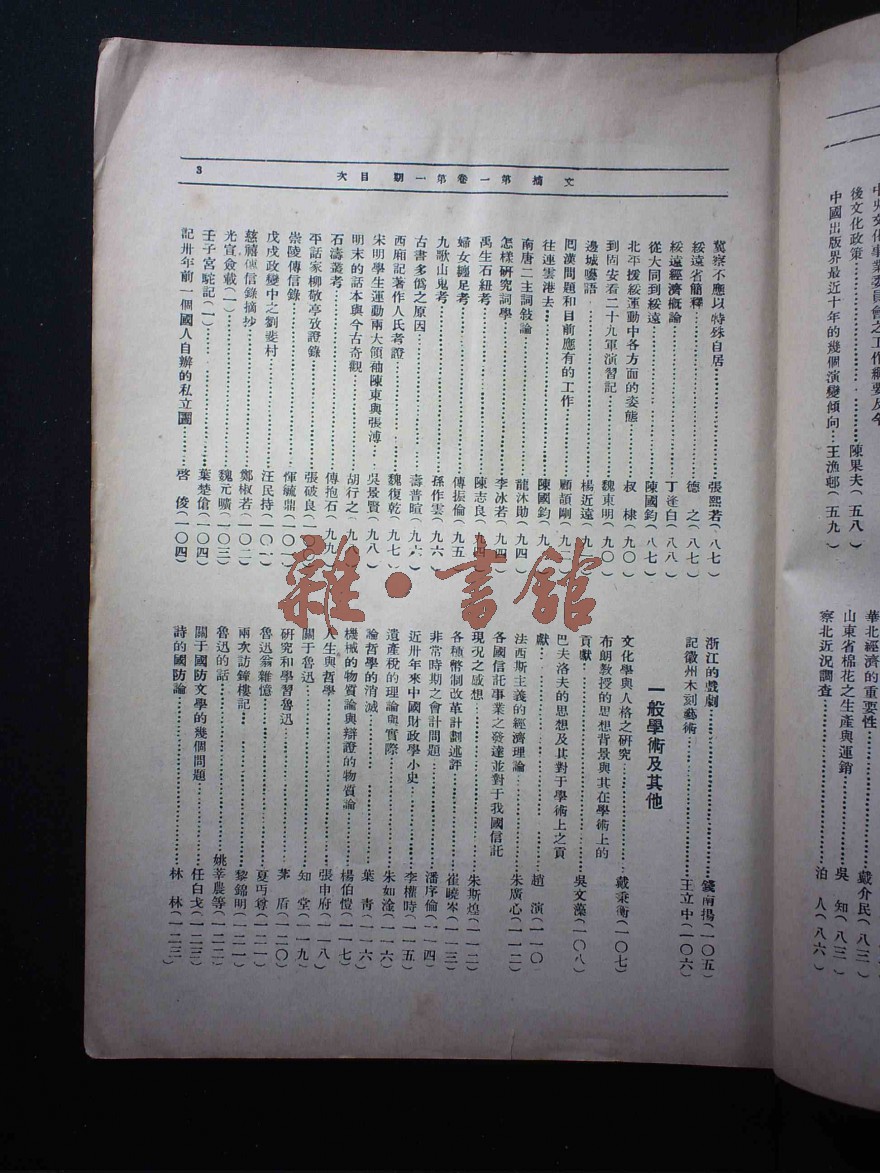 文摘 第一卷第一期 目次
3
冀察不應以特殊自居……張熙若(八七)
綏遠省簡釋……德 之(八七)
綏遠經濟概論……丁逢白(八八)
從大同到綏遠……陳國鈞(八七)
北平援綏運動中各方面的姿態……叔 棣(九〇)
到固安看二十九軍演習記……魏東明(九〇)
邊城囈語……楊近遠
囘漢問題和目前應有的工作……顧頡剛(九二)
往連雲港去……陳國鈞(九
南唐二主詞敍論……龍沐勛(九四)
怎樣研究詞學……李冰若(九四)
禹生石紐考……陳志良(九四)
婦女纏足考……傅振倫(九五
九歌山鬼考……孫作雲(九六)
古書多僞之原因……壽普暄(九六)
西廂記著作人氏考證……魏復乾(九七)
宋明學生運動兩大領袖陳東與張溥……吳景賢(九八)
明末的話本與今古奇觀……胡行之(九八)
石濤叢考……傅抱石(九九)
平話家柳敬亭攷證錄……張破良
崇陵傳信錄……惲毓鼎(一〇〇)
戊戌政變中之劉斐村……汪民持(一〇一)
慈禧傳信錄摘抄……鄭椒若(一〇二)
光宣僉載(一)……魏元曠(一〇三)
壬子宮駝記(一)……葉楚傖(一〇四)
記卅年前一個國人自辦的私立圕……啓 俊(一〇四)
浙江的戲劇……錢南揚(一〇五)
記徽州木刻藝術……王立中(一〇六)
一般學術及其他
文化學與人格之研究……戴秉衡(一〇七)
布朗教授的思想背景與其在學術上的
貢獻……吳文藻(一〇八)
巴夫洛夫的思想及其對于學術上之貢
獻……趙 演(一一〇)
法西斯主義的經濟理論……朱廣心(一一二)
各國信託事業之發達並對于我國信託
現況之感想……朱斯煌(一一二)
各種幣制改革計劃述評……崔曉岑(一一三)
非常時期之會計問題……潘序倫(一一四)
近卅年來中國財政學小史……李權時(一一五)
遺產稅的理論與實際……朱如淦(一一六)
論哲學的消滅……葉 青(一一六)
機械的物質論與辯證的物質論……楊伯愷(一一七)
人生與哲學……張申府(一一八)
關于魯迅……知 堂(一一九)
研究和學習魯迅……茅 盾(一二〇)
魯迅翁雜憶……夏丏尊(一二一)
兩次訪鐘樓記……黎錦明(一二一)
魯迅的話……姚莘農等(一二二)
關于國防文學的幾個問題……任白戈(一二三)
詩的國防論……林 林(一二三)
後文化政策……陳果夫(五八)
中國出版界最近十年的幾個演變傾向…王漁邨(五九)
華北經濟的重要性……戴介民(八三)
山東省棉花之生產與運銷……吳 知(八三)
察北近況調查……泊 人(八六)
雜·書館